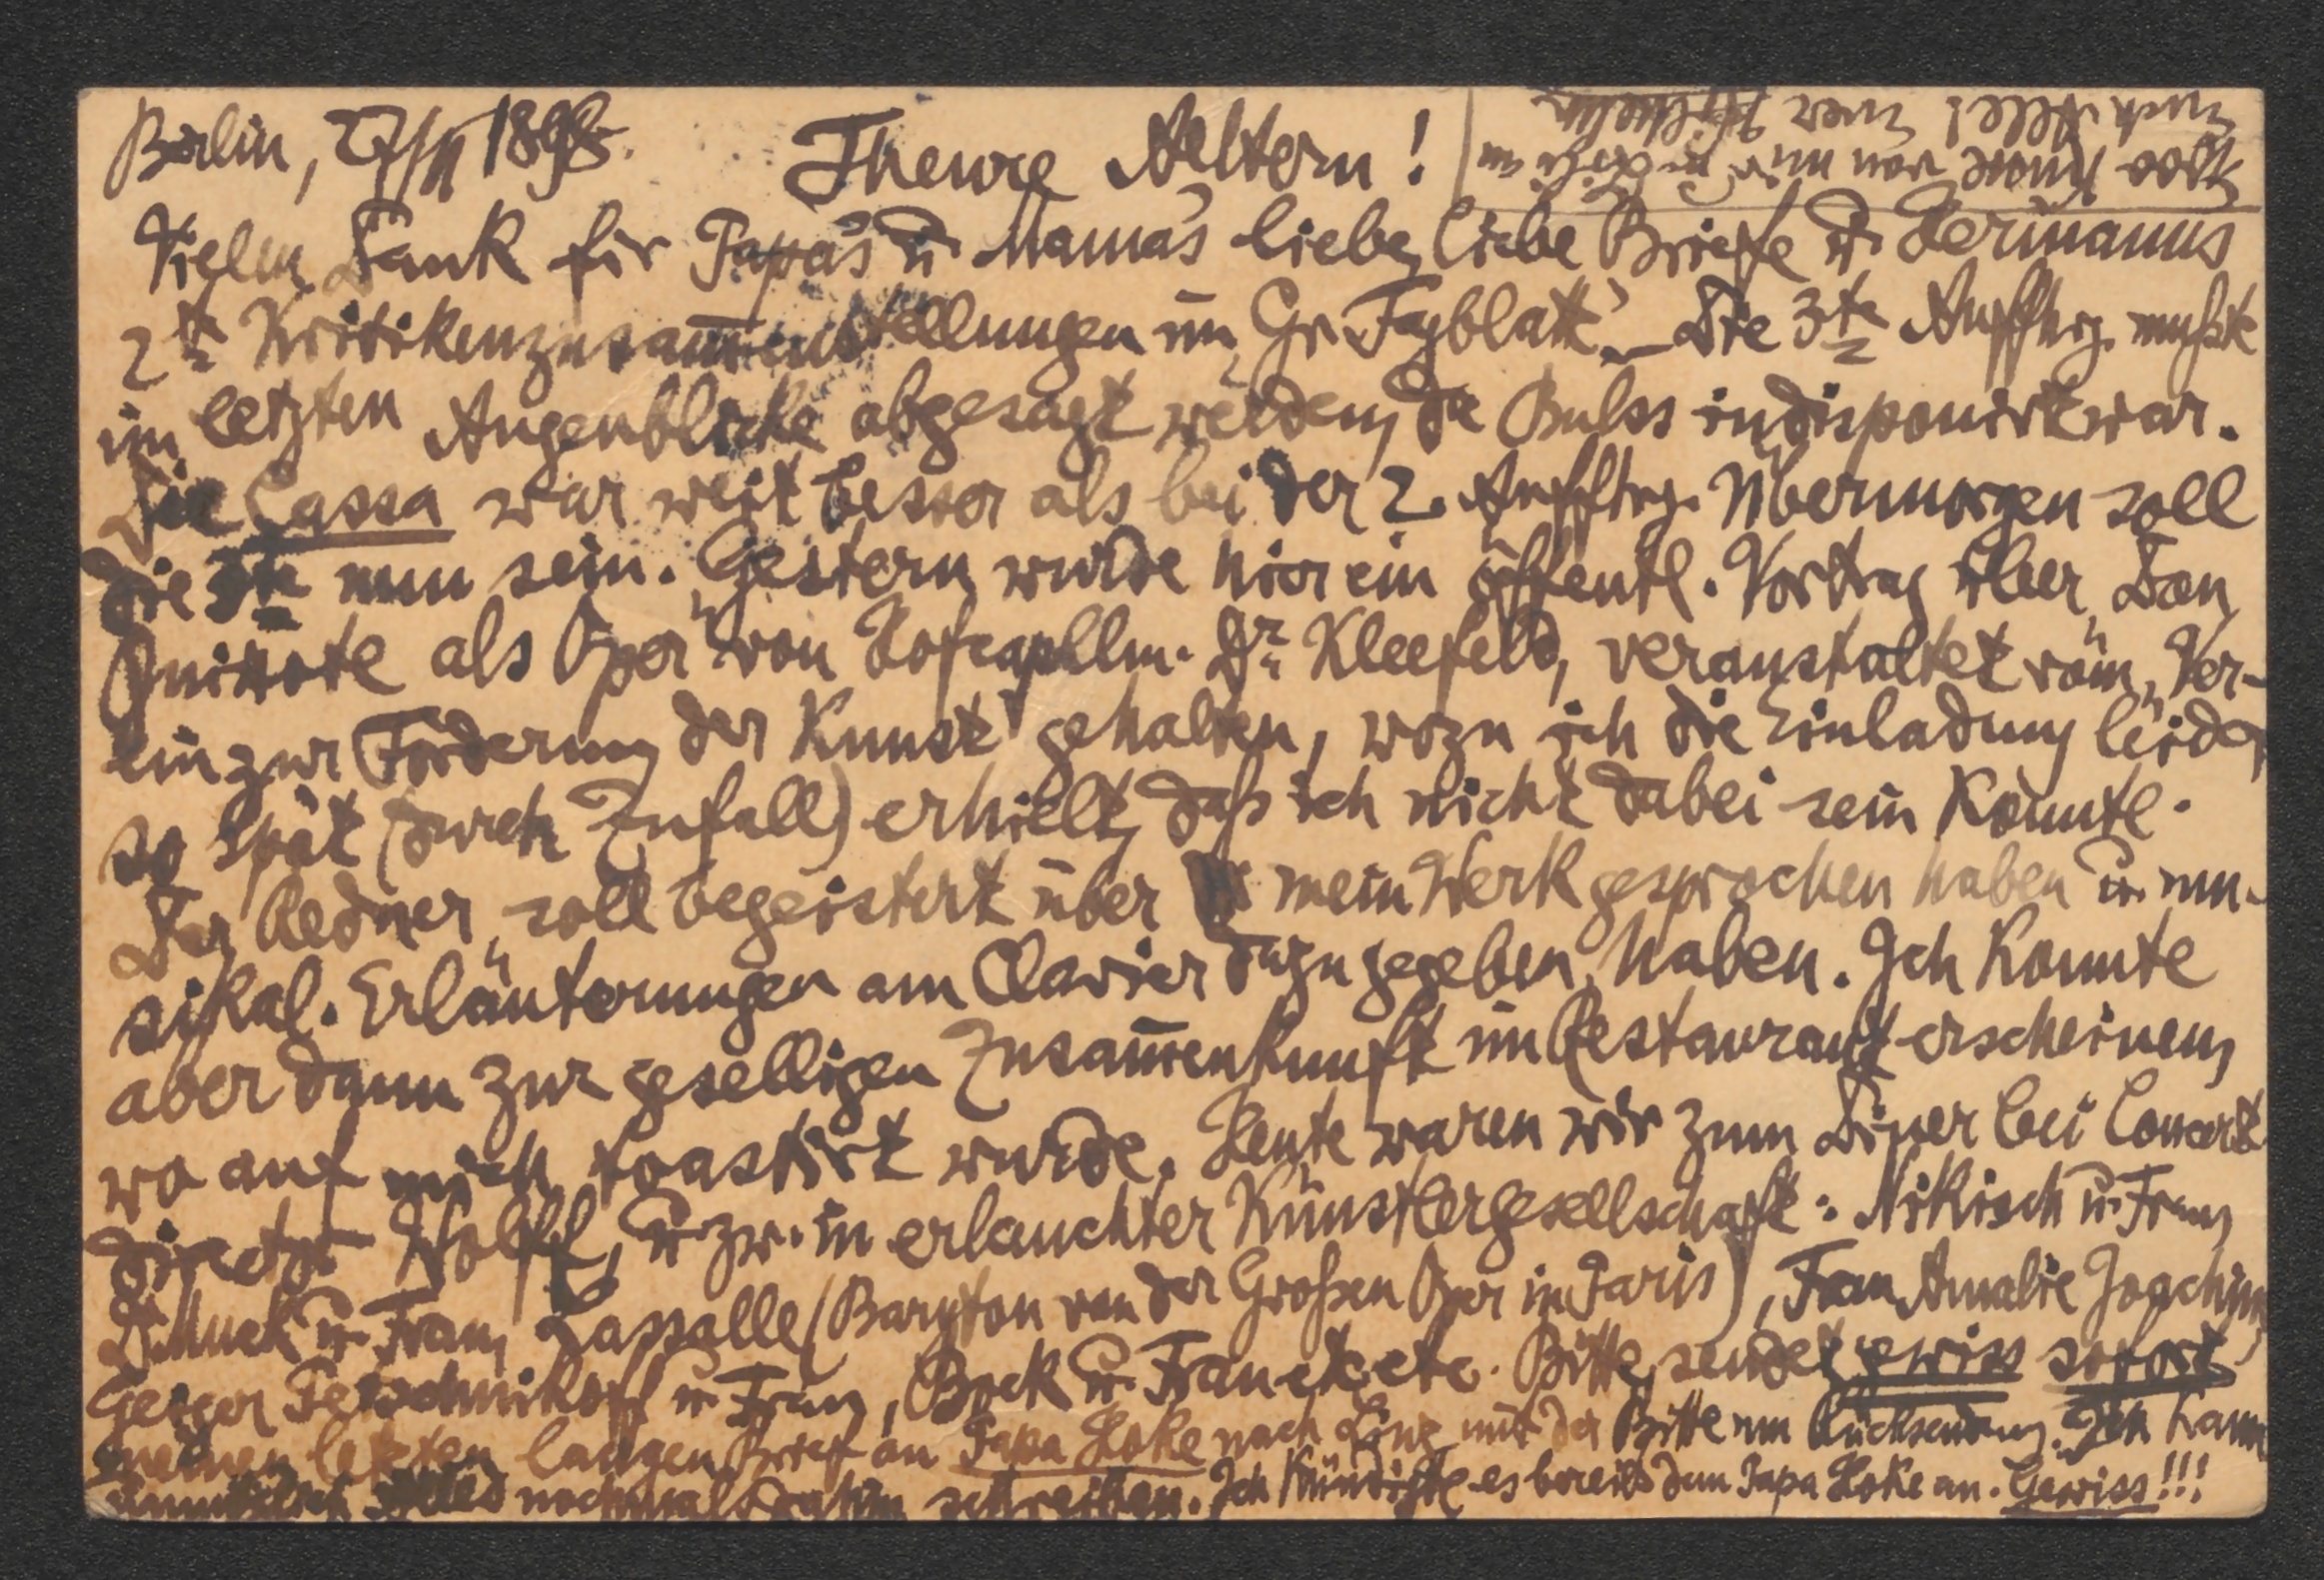 Berlin, 27/II 1898.
Theure Aeltern!
Vielen Dank für Papa's u. Mama's liebe, liebe Briefe u. Hermanns
2te Kritikenzusam̅enstellungen im „Gr. Tagblatt“. – Die 3te Auffhrg. mußte
im letzten Augenblicke abgesagt werden, da Bulss indisponirt war.
Die Cassa war weit besser als bei der 2. Auffhrg. Übermorgen soll
die 3te nun sein. Gestern wurde hier ein öffentl. Vortrag über „Don
Quixote als Oper“ von Hofcapellm. Dr. Kleefeld, veranstaltet vom „Ver-
ein zur Förderung der Kunst“ gehalten, wozu ich die Einladung leider
so spät (durch Zufall) erhielt, daß ich nicht dabei sein konnte.
Der Redner soll begeistert über mein Werk gesprochen haben u. „mu-
sikal. Erläuterungen am Clavier dazu gegeben“ haben. Ich konnte
aber dann zur geselligen Zusam̅enkunft im Restaurant erscheinen,
wo auf mich toastirt wurde. Heute waren wir zum Diner bei Concert
director Wolff, u. zw. in erlauchter Künstlergesellschaft: Nikisch u. Frau,
Dr. Muck u. Frau, Lassalle (Baryton von der Großen Oper in Paris), Frau Amalie Joachim,
Geiger Petschnikoff u. Frau, Bock u. Frau etc etc. Bitte, sendet gewiss sofort
meinen letzten langen Brief an Papa Hoke nach Linz mit der Bitte um Rücksendung. Ich kann
nochmals dahin schreiben. Ich kündigte es bereits dem Papa Hoke an. Gewiss!!!
1000 von mir an
Euch Alle! Euer Wilhelm